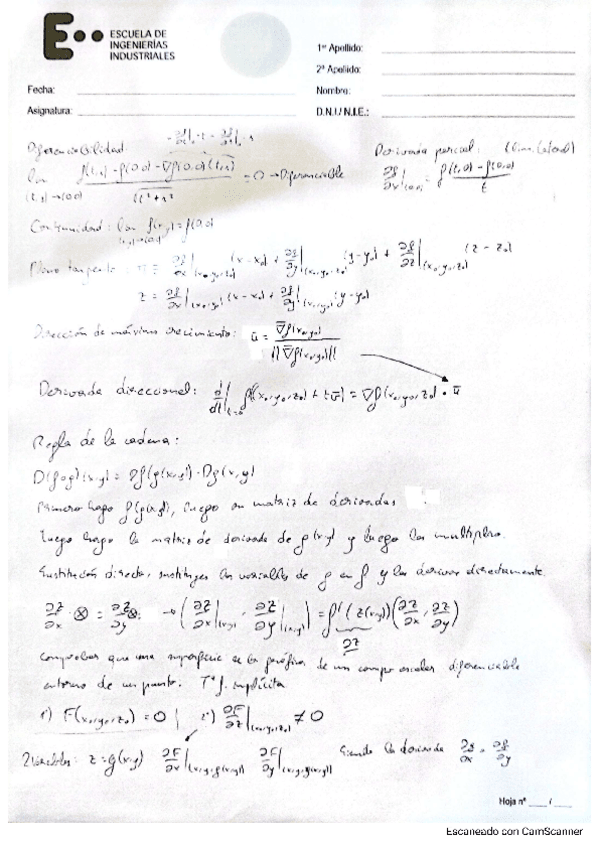 ESCUELA DE
INGENIERÍAS
INDUSTRIALES
1er Apellido:
2º Apellido:
Fecha:
Nombre:
Asignatura:
D.N.I / N.I.E.:
Diferenciabilidad:
Derivada parcial:
lim f(t,s) - f(0,0) - ∇f(0,0)(t,s) / √(t²+s²) = 0 → Diferenciable
∂f/∂x|(0,0) = f(t,0) - f(0,0) / t
(t,s)→(0,0)
Continuidad: lim f(x,y) = f(0,0)
Plano tangente: π = ∂f/∂x|(x₀,y₀,z₀) (x-x₀) + ∂f/∂y|(x₀,y₀,z₀) (y-y₀) + ∂f/∂z|(x₀,y₀,z₀) (z-z₀)
z = ∂f/∂x|(x₀,y₀) (x-x₀) + ∂f/∂y|(x₀,y₀) (y-y₀)
Dirección de máximo crecimiento: ū = ∇f(x₀,y₀) / ||∇f(x₀,y₀)||
Derivada direccional: d/dt|t=0 f((x₀,y₀,z₀) + tū) = ∇f(x₀,y₀,z₀) • ū
Regla de la cadena:
D(f∘g)(x,y) = Df(g(x,y)) · Dg(x,y)
Primero hago f(g(x,y)), luego su matriz de derivadas
Luego hago la matriz de derivada de g(x,y) y luego las multiplico.
Sustitución directa, sustituyes las variables de g en f y las derivas directamente.
∂z/∂x · ⊗ = ∂z/∂y ⊗ → (∂z/∂x|(x,y), ∂z/∂y|(x,y)) = f'(z(x,y)) (∂z/∂x, ∂z/∂y)
∂z
comprobar que una superficie es la gráfica de un campo escalar diferenciable
entorno de un punto. Tª f. implícita
1º) F(x₀,y₀,z₀) = 0 | 2º) ∂F/∂z|(x₀,y₀,z₀) ≠ 0
2 variables: z = g(x,y) ∂F/∂x|(x,y,g(x,y)) ∂F/∂y|(x,y,g(x,y)) Siendo la derivada ∂g/∂x, ∂g/∂y
Hoja nº ____ / ____
Escaneado con CamScanner